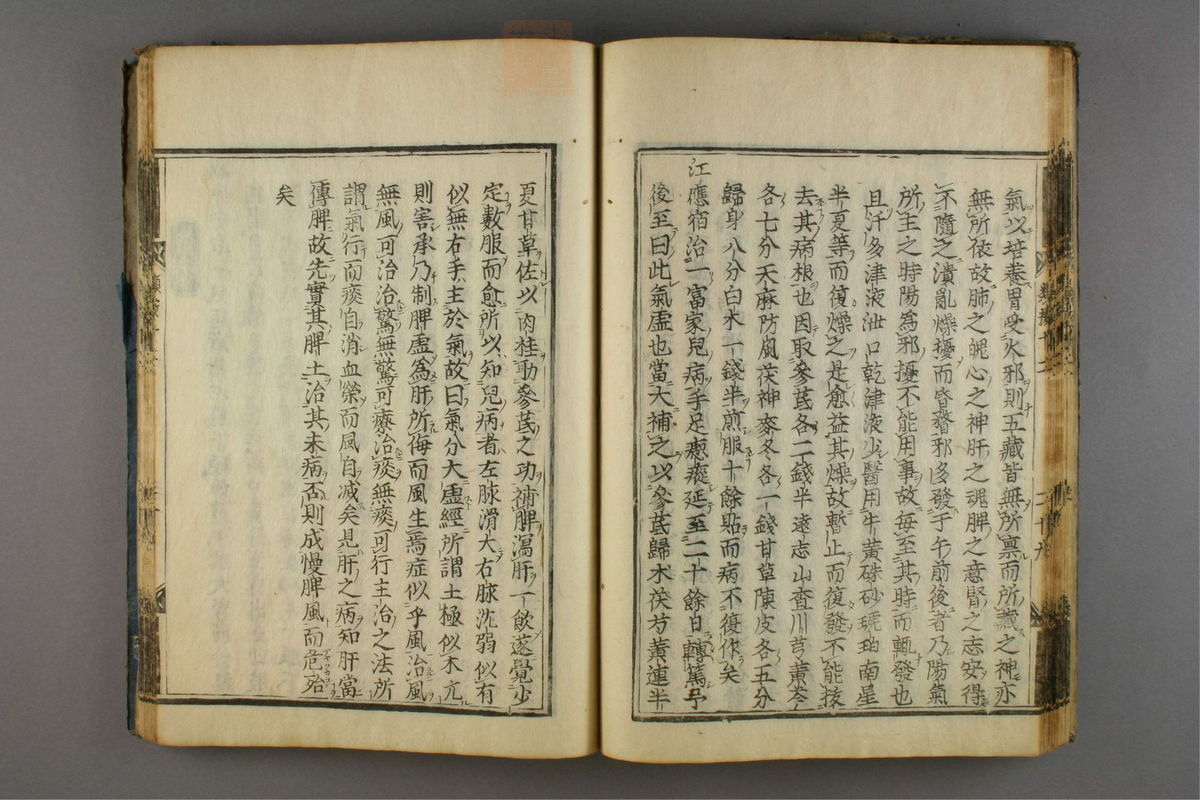 氣以培養胃受火邪則五藏皆無所禀而所藏之神亦
無所依故肺之魄心之神肝之魂脾之意腎之志安得
不隨之潰亂燥擾而昏瞀邪多發于午前後者乃陽氣
所主之時陽爲邪擾不能用事故每至其時而輒發也
且汗多津液泄口乾津液少醫用牛黃硃砂琥珀南星
半夏等而復燥之是愈益其燥故暫止而復發不能拔
去其病根也因取參芪各二錢半遠志山查川芎黃芩
各七分天麻防風茯神麥冬各一錢甘草陳皮各五分
歸身八分白朮一錢半煎服十餘貼而病不復作矣
江應宿治一富家兒病手足瘛瘲延至二十餘日轉篤予
後至曰此氣虛也當大補之以參芪歸朮茯芍黃連半
夏甘草佐以肉桂助參芪之功補脾瀉肝一飲遂覺少
定數服而愈所以知兒病者左脉滑大右脉沈弱似有
似無右手主於氣故曰氣分大虛經所謂土極似木亢
則害承乃制脾虛爲肝所侮而風生焉症似乎風治風
無風可治治驚無驚可療治痰無痰可行主治之法所
謂氣行而痰自消血榮而風自減矣見肝之病知肝當
傳脾故先實其脾土治其未病否則成慢脾風而危殆
矣